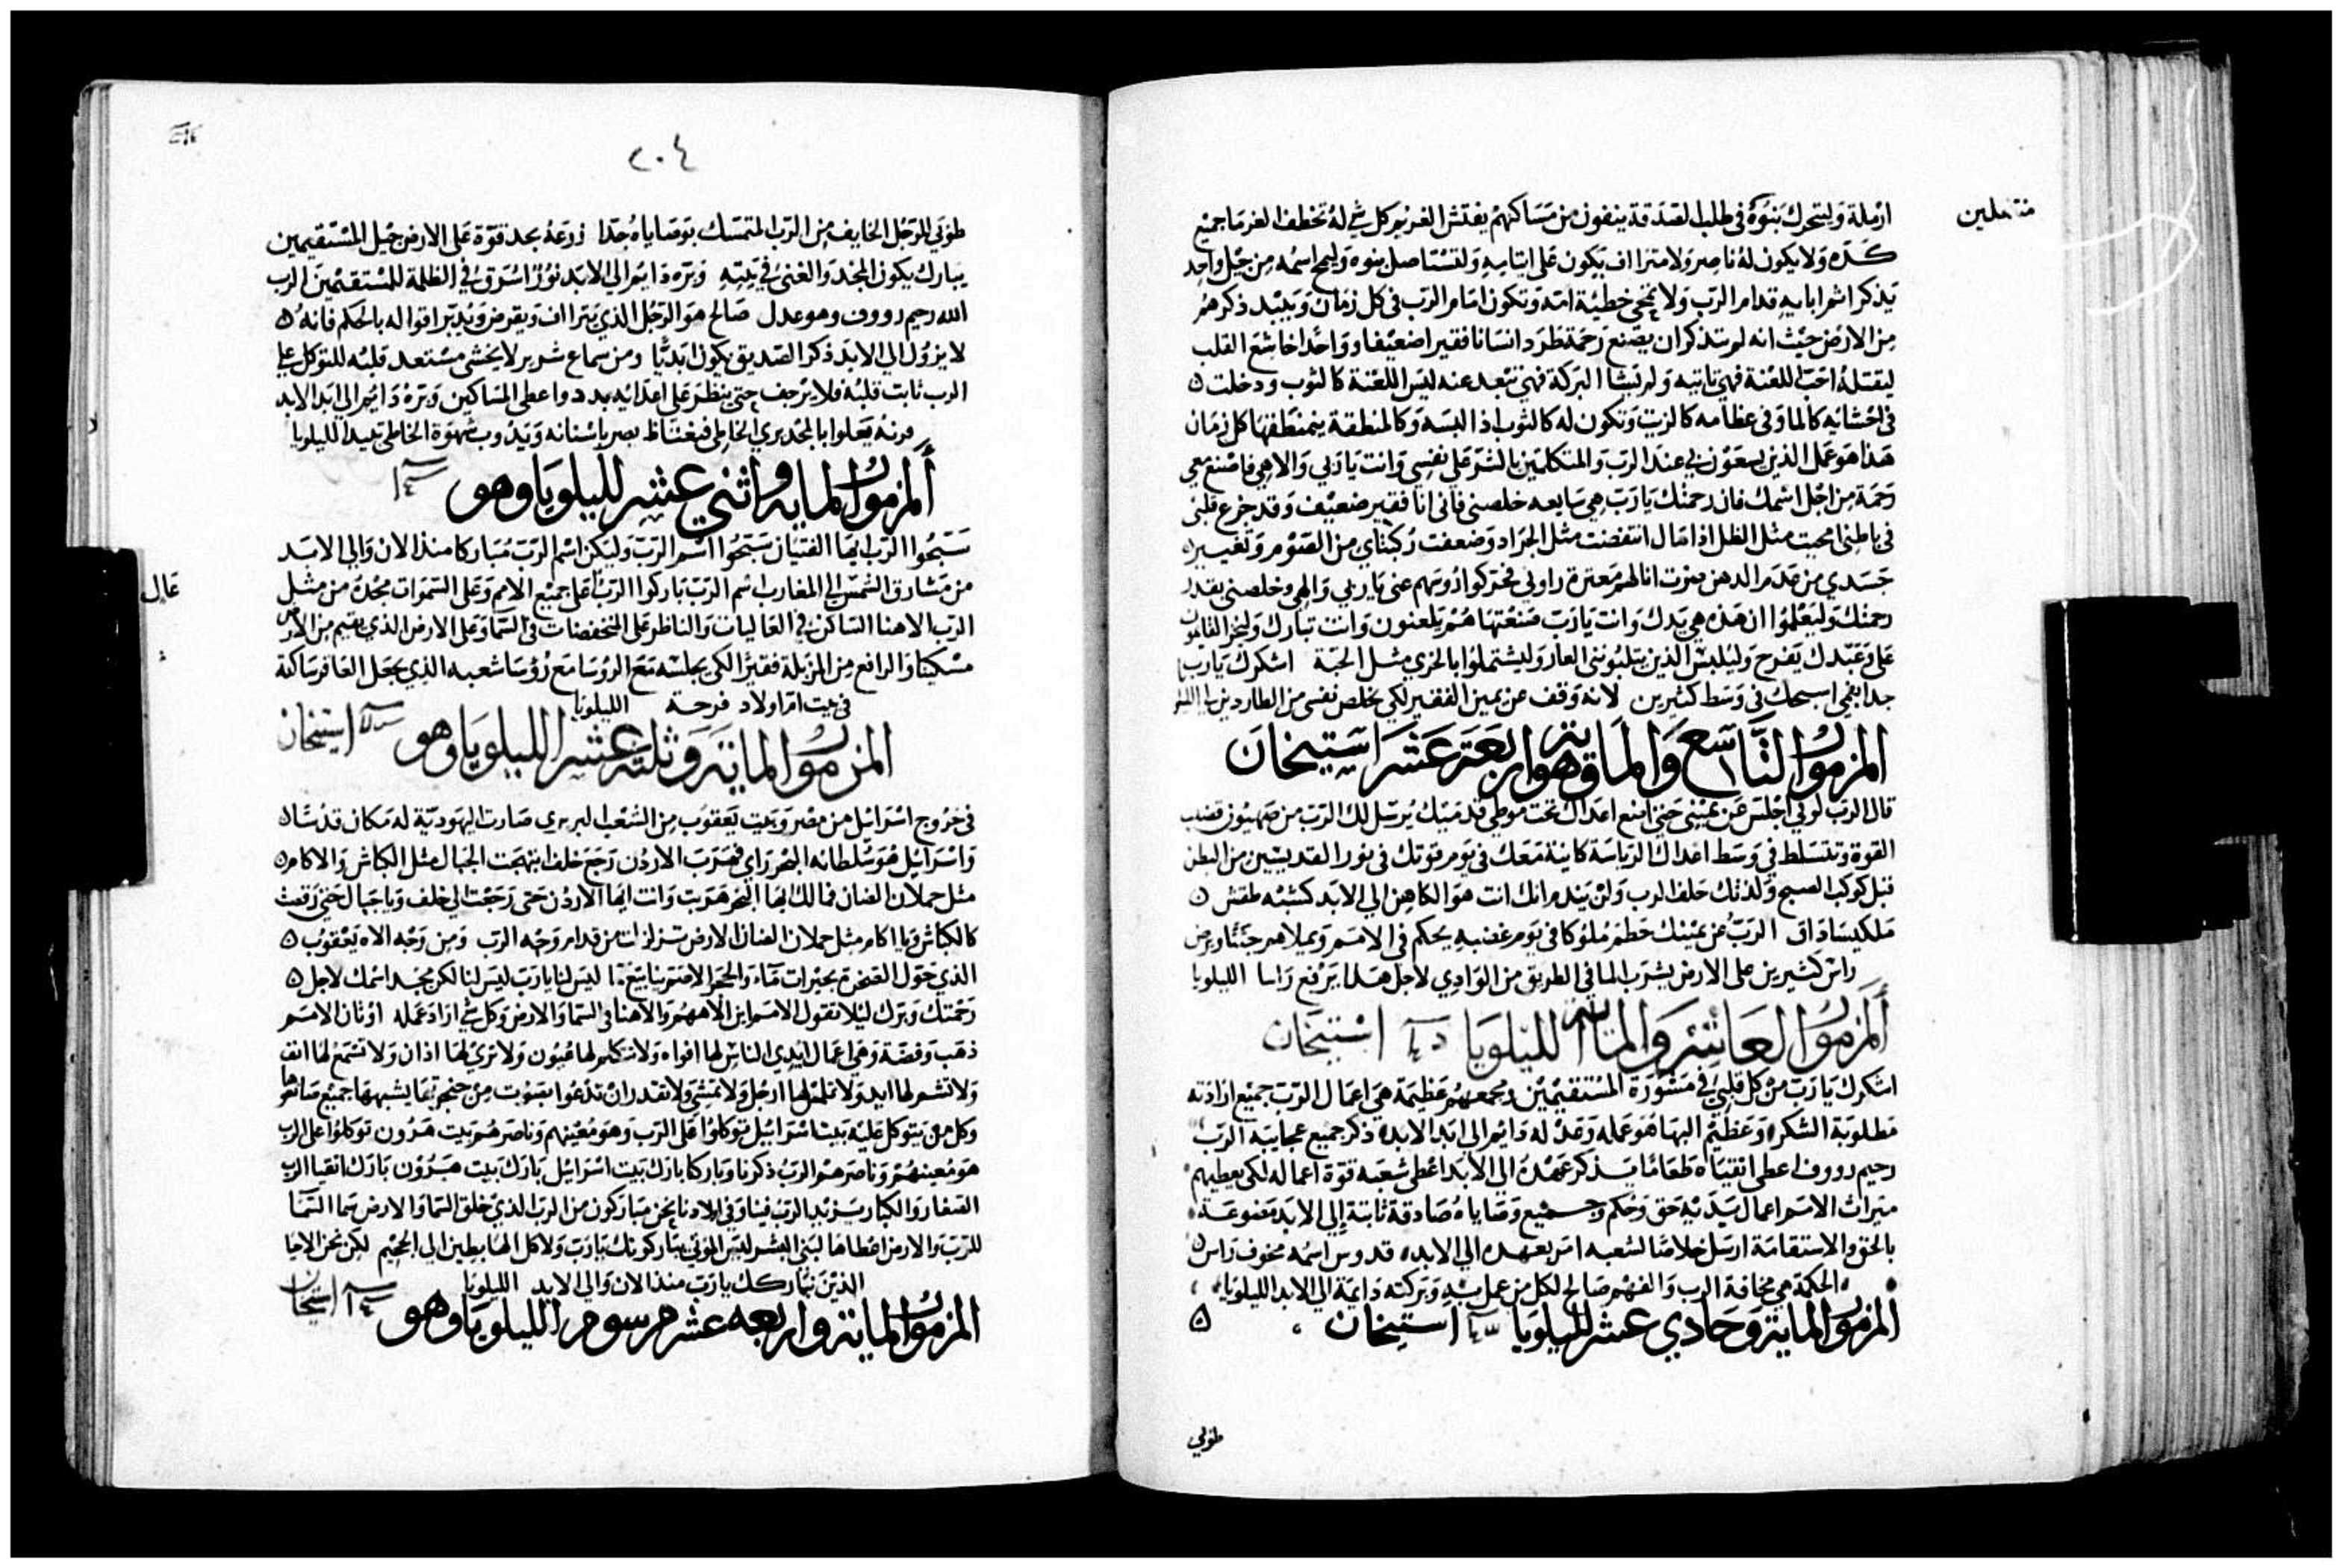 ارملة وليتحرك بنوه في طلب الصدقة ينفون من مساكنهم يفتش الغريم كل شي له تخطف الغرما جميع
كده ولا يكون له ناصر ولا متراف يكون علي ايتامه ولتستاصل بنوه وليمح اسمه من جيل واحد
يذكر اثم ابايه قدام الرب ولا تمحي خطية امه وتكون امام الرب في كل زمان ويبيد ذكرهم
من الارض حيث انه لم يتذكر ان يصنع رحمة فطرد انسانا فقيرا ضعيفا وواحدا خاشع القلب
ليقتله احب اللعنة فهي تاتيه ولم يشا البركة فهي تبعد عنه لبس اللعنة كالثوب ودخلت
في احشايه كالما وفي عظامه كالزيت وتكون له كالثوب اذا لبسه وكالمنطقة يتمنطق بها كل زمان
هذا هو عمل الذين يسعون بي عند الرب والمتكلمين بالشر علي نفسي وانت يا ربي والاهي فاصنع معي
رحمة من اجل اسمك فان رحمتك يا رب هي سابعه خلصني فاني انا فقير ضعيف وقد جزع قلبي
في باطني محيت مثل الظل اذا مال انتفضت مثل الجراد وضعفت ركبتاي من الصوم وتغير
جسدي من عدم الدهن صرت انا لهم معيرة راوني فحركوا رؤسهم عني يا ربي والهي وخلصني بقدر
رحمتك وليعلموا ان هذه هي يدك وانت يا رب صنعتها هم يلعنون وانت تبارك وليخز القايمون
علي وعبدك يفرح وليلبس الذين يثلبونني العار وليشتملوا بالخزي مثل الجبة اشكرك يا رب
جدا بفمي اسبحك في وسط كثيرين لانه وقف عن يمين الفقير لكي يخلص نفسي من الطاردين
المزمور التاسع والمايه وهو اربعة عشر استيخان
قال الرب لربي اجلس عن يميني حتي اضع اعداك تحت موطي قدميك يرسل لك الرب من صهيون قضيب
القوة وتتسلط في وسط اعداك الرياسة كاينة معك في يوم قوتك في نور القديسين من البطن
قبل كوكب الصبح ولدتك حلف الرب ولن يندم انك انت هو الكاهن الي الابد كشبه طقس
ملكيساداق الرب عن يمينك حطم ملوكا في يوم غضبه يحكم في الامم ويملاهم جثثا ويرض
راس كثيرين علي الارض يشرب الما في الطريق من الوادي لاجل هذا يرفع راسا الليلويا
المزمور العاشر والمايه الليلويا استيخان
اشكرك يا رب من كل قلبي في مشورة المستقيمين ومجمعهم عظيمة هي اعمال الرب جميع ارادته
مطلوبة الشكر وعظيم البها هو عمله وعدله دايم الي ابد الابد ذكر جميع عجايبه الرب
رحيم رووف اعطي اتقياه طعاما يذكر عهده الي الابد اعطي شعبه قوة اعماله لكي يعطيهم
ميراث الامم اعمال يديه حق وحكم وجميع وصاياه صادقة ثابتة الي الابد مصنوعة
بالحق والاستقامة ارسل خلاصا لشعبه امر بعهده الي الابد قدوس اسمه مخوف راس
الحكمة هي مخافة الرب والفهم صالح لكل من عمل به وبركته دايمة الي الابد الليلويا
المزمور الماية وحادي عشر الليلويا استيخان
طوبي
٢٠٤
طوبي للرجل الخايف من الرب المتمسك بوصاياه جدا زرعه يجد قوة علي الارض جيل المستقيمين
يبارك يكون المجد والغني في بيته وبره دايم الي الابد نور اشرق في الظلمة للمستقيمين الرب
الله رحيم رووف وهو عدل صالح هو الرجل الذي يتراف ويقرض ويدبر اقواله بالحكم فانه
لا يزول الي الابد ذكر الصديق يكون ابديا ومن سماع شرير لا يخشي مستعد قلبه للتوكل علي
الرب ثابت قلبه فلا يرجف حتي ينظر علي اعدايه بدد واعطي المساكين وبره دايم الي ابد الابد
قرنه يعلوا بالمجد يري الخاطي فيغتاظ يصر باسنانه ويذوب شهوة الخاطي تبيد الليلويا
المزمور المايه واثني عشر لليلويا وهو
سبحوا الرب ايها الفتيان سبحوا اسم الرب وليكن اسم الرب مباركا منذ الان والي الابد
من مشارق الشمس الي المغارب اسم الرب باركوا الرب عال علي جميع الامم وعلي السموات مجده من مثل
الرب الاهنا الساكن في العاليات والناظر علي المنخفضات في السما وعلي الارض الذي يقيم من الارض
مسكينا والرافع من المزبلة فقيرا لكي يجلسه مع الروسا مع رؤسا شعبه الذي يجعل العاقر ساكنة
في بيت ام اولاد فرحة الليلويا
المزمور الماية وثلثة عشر الليلويا وهو استيخان
في خروج اسرائيل من مصر وبيت يعقوب من الشعب البربري صارت اليهودية له مكان قدسا
واسرايل هو سلطانه البحر راي فهرب الاردن رجع خلف ابتهجت الجبال مثل الكباش والاكام
مثل حملان الضان فما لك ايها البحر هربت وانت ايها الاردن حتي رجعت الي خلف ويا جبال حتي رقصت
كالكباش ويا اكام مثل حملان الضان الارض تزلزلت من قدام وجه الرب ومن وجه الاه يعقوب
الذي حول الصخرة بحيرات ماء والحجر الاصم ينابيع ما ليس لنا يا رب ليس لنا لكن مجد اسمك لاجل
رحمتك وبرك ليلا تقول الامم اين الاههم والاهنا في السما والارض وكل شي اراد عمله اوثان الامم
ذهب وفضة وهي اعمال ايدي الناس لها افواه ولا تتكلم لها عيون ولا تري لها اذان ولا تسمع لها انف
ولا تشم لها ايد ولا تلمس لها ارجل ولا تمشي ولا تقدر ان تدعوا بصوت من حنجرتها يشبهها جميع صانعوها
وكل من يتوكل عليه بيت اسرائيل توكلوا علي الرب وهو معينهم وناصرهم بيت هرون توكلوا علي الرب
هو معينهم وناصرهم الرب ذكرنا وباركنا بارك بيت اسرايل بارك بيت هرون بارك اتقيا الرب
الصغار والكبار يزيد الرب فينا وفي اولادنا نحن مباركون من الرب الذي خلق السما والارض سما السما
للرب والارض اعطاها لبني البشر ليس الموتي يباركونك يا رب ولا كل الهابطين الي الجحيم لكن نحن الاحيا
الذين نباركك يا رب منذ الان والي الابد الليلويا
المزمور الماية واربعه عشر مرسوم الليلويا وهو استيخان